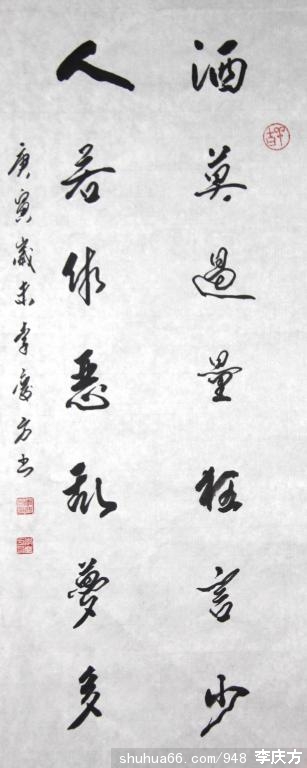 酒莫過量狂言少
人若做惡亂夢多
庚寅歲末李慶方书
shuhua66.com/948 李庆方